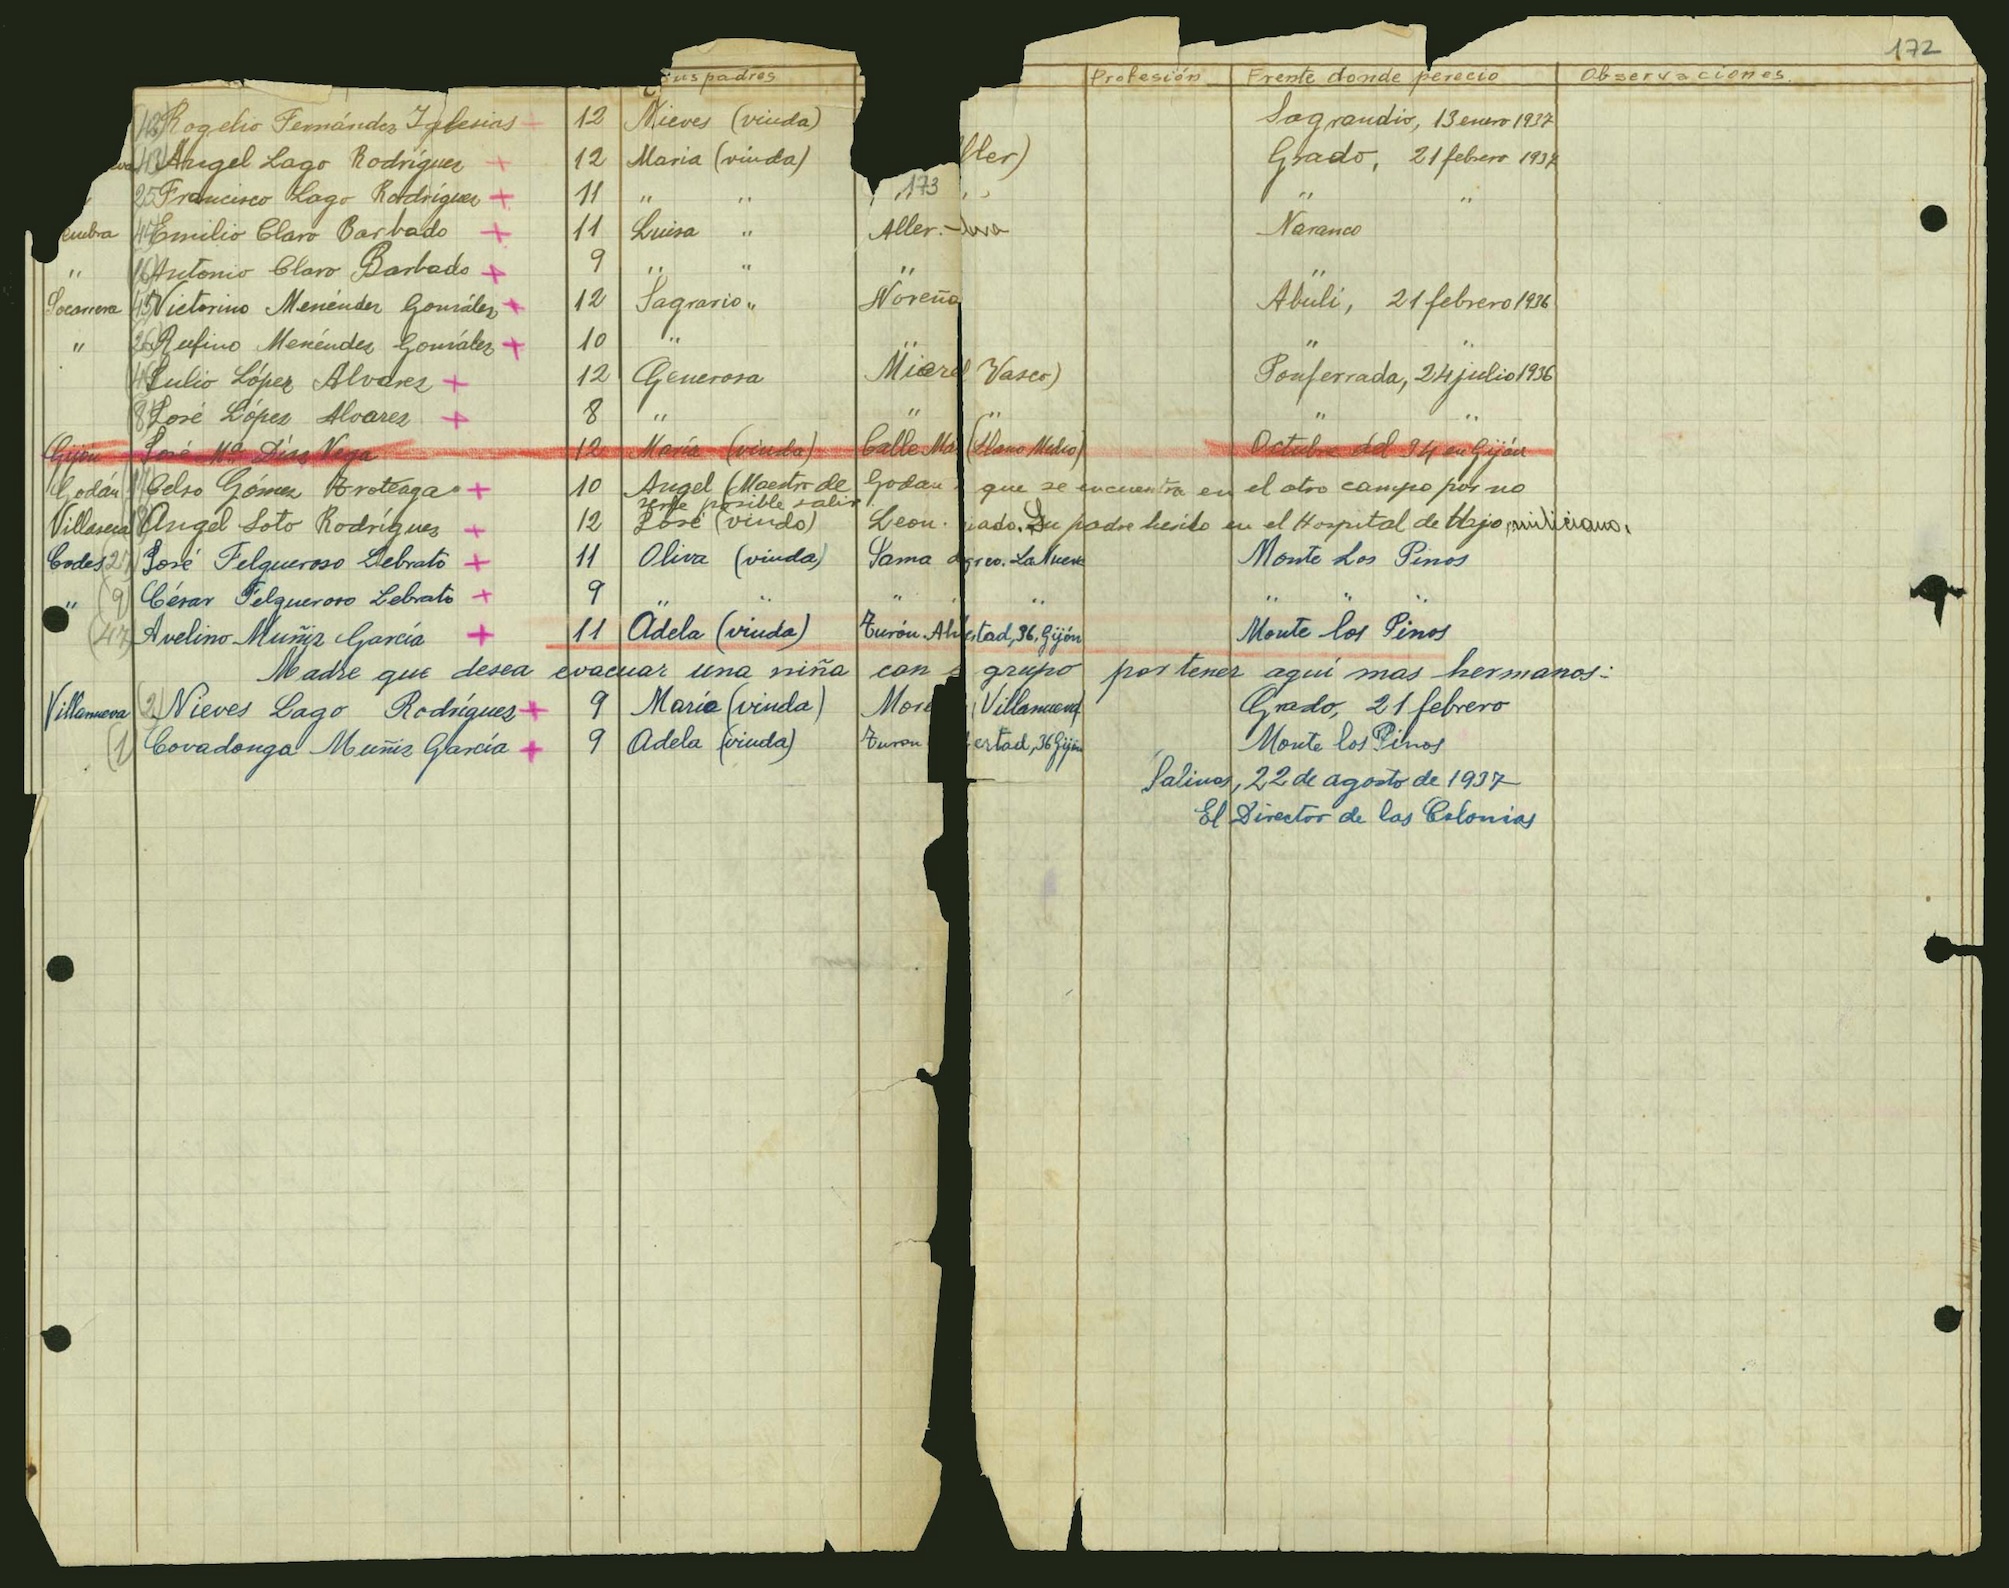 172
sus padres Profesión Frente donde pereció Observaciones.
Rogelio Fernández Iglesias + 12 Nieves (viuda) Sograndio, 13 enero 1937
Angel Lago Rodríguez + 12 Maria (viuda) ller) Grado, 21 febrero 1937
25) Francisco Lago Rodríguez + 11 " " 173 " " " "
Emilio Claro Barbado + 11 Luisa " Aller.- Naranco
" Antonio Claro Barbado + 9 " " " "
Socarrera 45) Victorino Menéndez González + 12 Sagrario " Noreña Abuli, 21 febrero 1936
" 26) Rufino Menéndez González + 10 " " " "
Julio López Alvarez + 12 Generosa Vasco) Ponferrada, 24 julio 1936
8) José López Alvarez + 8 " " " " "
Gijón José Mª Díaz Vega 12 María (viuda) Calle (Llano Medio) Octubre del 34 en Gijón
Godán Celso Gómez + 10 Angel (Maestro de Godan que se encuentra en el otro campo por no
serle posible salir
Angel Soto Rodríguez + 12 José (viudo) Leon. Su padre herido en el Hospital de miliciano.
Codes José Felgueroso Lebrato + 11 Oliva (viuda) Sama La Nueva Monte Los Pinos
" (9) César Felgueroso Lebrato + 9 " " " " " " " "
(47) Avelino Muñiz García + 11 Adela (viuda) Turón. ertad, 36, Gijón Monte los Pinos
Madre que desea evacuar una niña con grupo por tener aquí mas hermanos:
Villanueva (2) Nieves Lago Rodríguez + 9 María (viuda) Villanueva Grado, 21 febrero
(1) Covadonga Muñiz García + 9 Adela (viuda) Turon ertad, 36 Gijón Monte los Pinos
Salinas, 22 de agosto de 1937
El Director de las Colonias